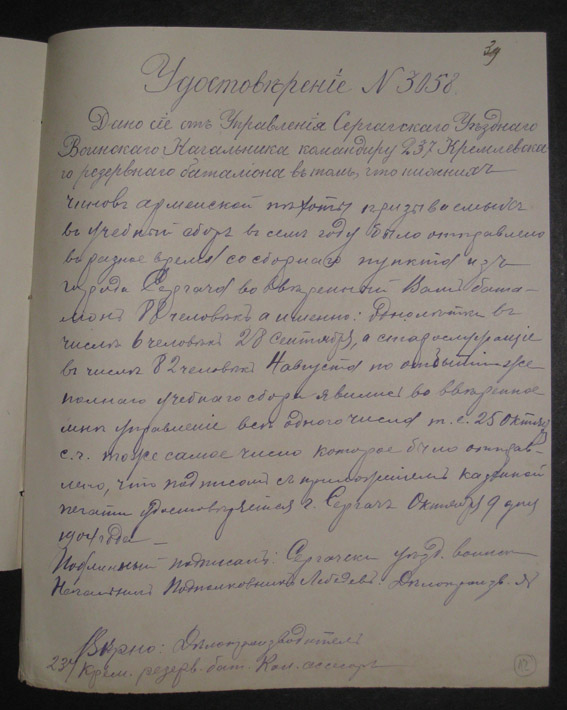 39
Удостовѣреніе N 3058.
Дано сіе отъ Управленія Сергачскаго Уѣзднаго
Воинскаго Начальника командиру 237 Кремлевска-
го резервнаго баталіона въ томъ, что нижнихъ
чиновъ армейской пѣхоты призываемыхъ
въ учебный сборъ въ семъ году было отправлено
въ разное время со сборнаго пункта изъ
города Сергача во ввѣренный Вамъ бата-
ліонъ 88 человѣкъ а именно:
числѣ 6 человѣкъ 28 Сентября, а старослужащіе
въ числѣ 82 человѣкъ 4 августа по отбытіи же
полнаго учебнаго сбора явились во ввѣренное
мнѣ управленіе всѣ одного числа т. е. 25 Октября
с. г. тоже самое число которое было отправ-
лено, что подписомъ съ приложеніемъ казенной
печати удостовѣряется г. Сергачъ Октября 9 дня
1904 года —
Подлинный подписалъ: Сергачскій уѣзд. воинскій
Начальникъ Подполковникъ Лебедевъ. Дѣлопроизв.
Вѣрно: Дѣлопроизводитель
237 Крем. резерв. бат. Кол. ассесоръ
12